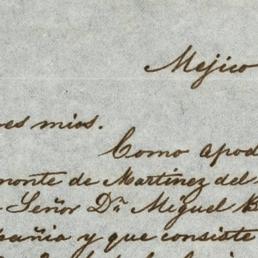 Mejico
es mios.
Como apod
monte de Martinez del
Señor Dn Miguel B
pañia y que consiste